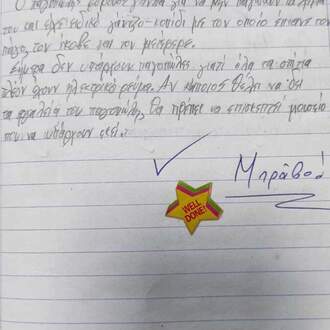 Ο παγοπώλης φορούσε γάντια για να μην παγώνουν τα χέρια
του και είχε ειδικό γάντζο - κοπίδι με τον οποίο έπιανε τον
πάγο, τον έκοβε και τον μετέφερε.
Σήμερα δεν υπάρχουν παγοπώλες, γιατί όλα τα σπίτια
πλέον έχουν ηλεκτρικό ρεύμα. Αν κάποιος θέλει να δει
τα εργαλεία του παγοπώλη, θα πρέπει να επισκεπτεί μουσείο
που να υπάρχουν εκεί.
Μπράβο!
WELL
DONE!